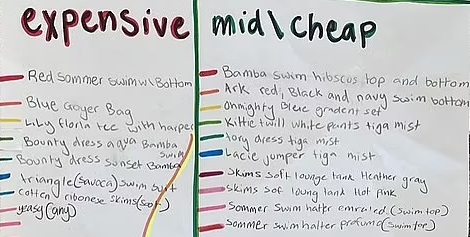 expensive
Red sommer swim w\ Bottom
Blue Goyer Bag
Lily floria tee with harper
Bounty dress aqua Bamba swim
Bounty dress sunset Bamba
triangle (savoca) swim suit
cotten ribonese skims (set)
yeasy (any)
mid\cheap
Bamba swim hibscus top and bottom
Ark red, Black and navy swim bottom
Ohmighty Blue gradent set
Kittie twill white pants tiga mist
tory dress tiga mist
Lacie jumper tiga mist
Skims soft lounge tank Heather gray
Skims sof loung tank Hot Pink
Sommer Swim halter emraled (swim top)
Sommer swim halter profumo (swim top)